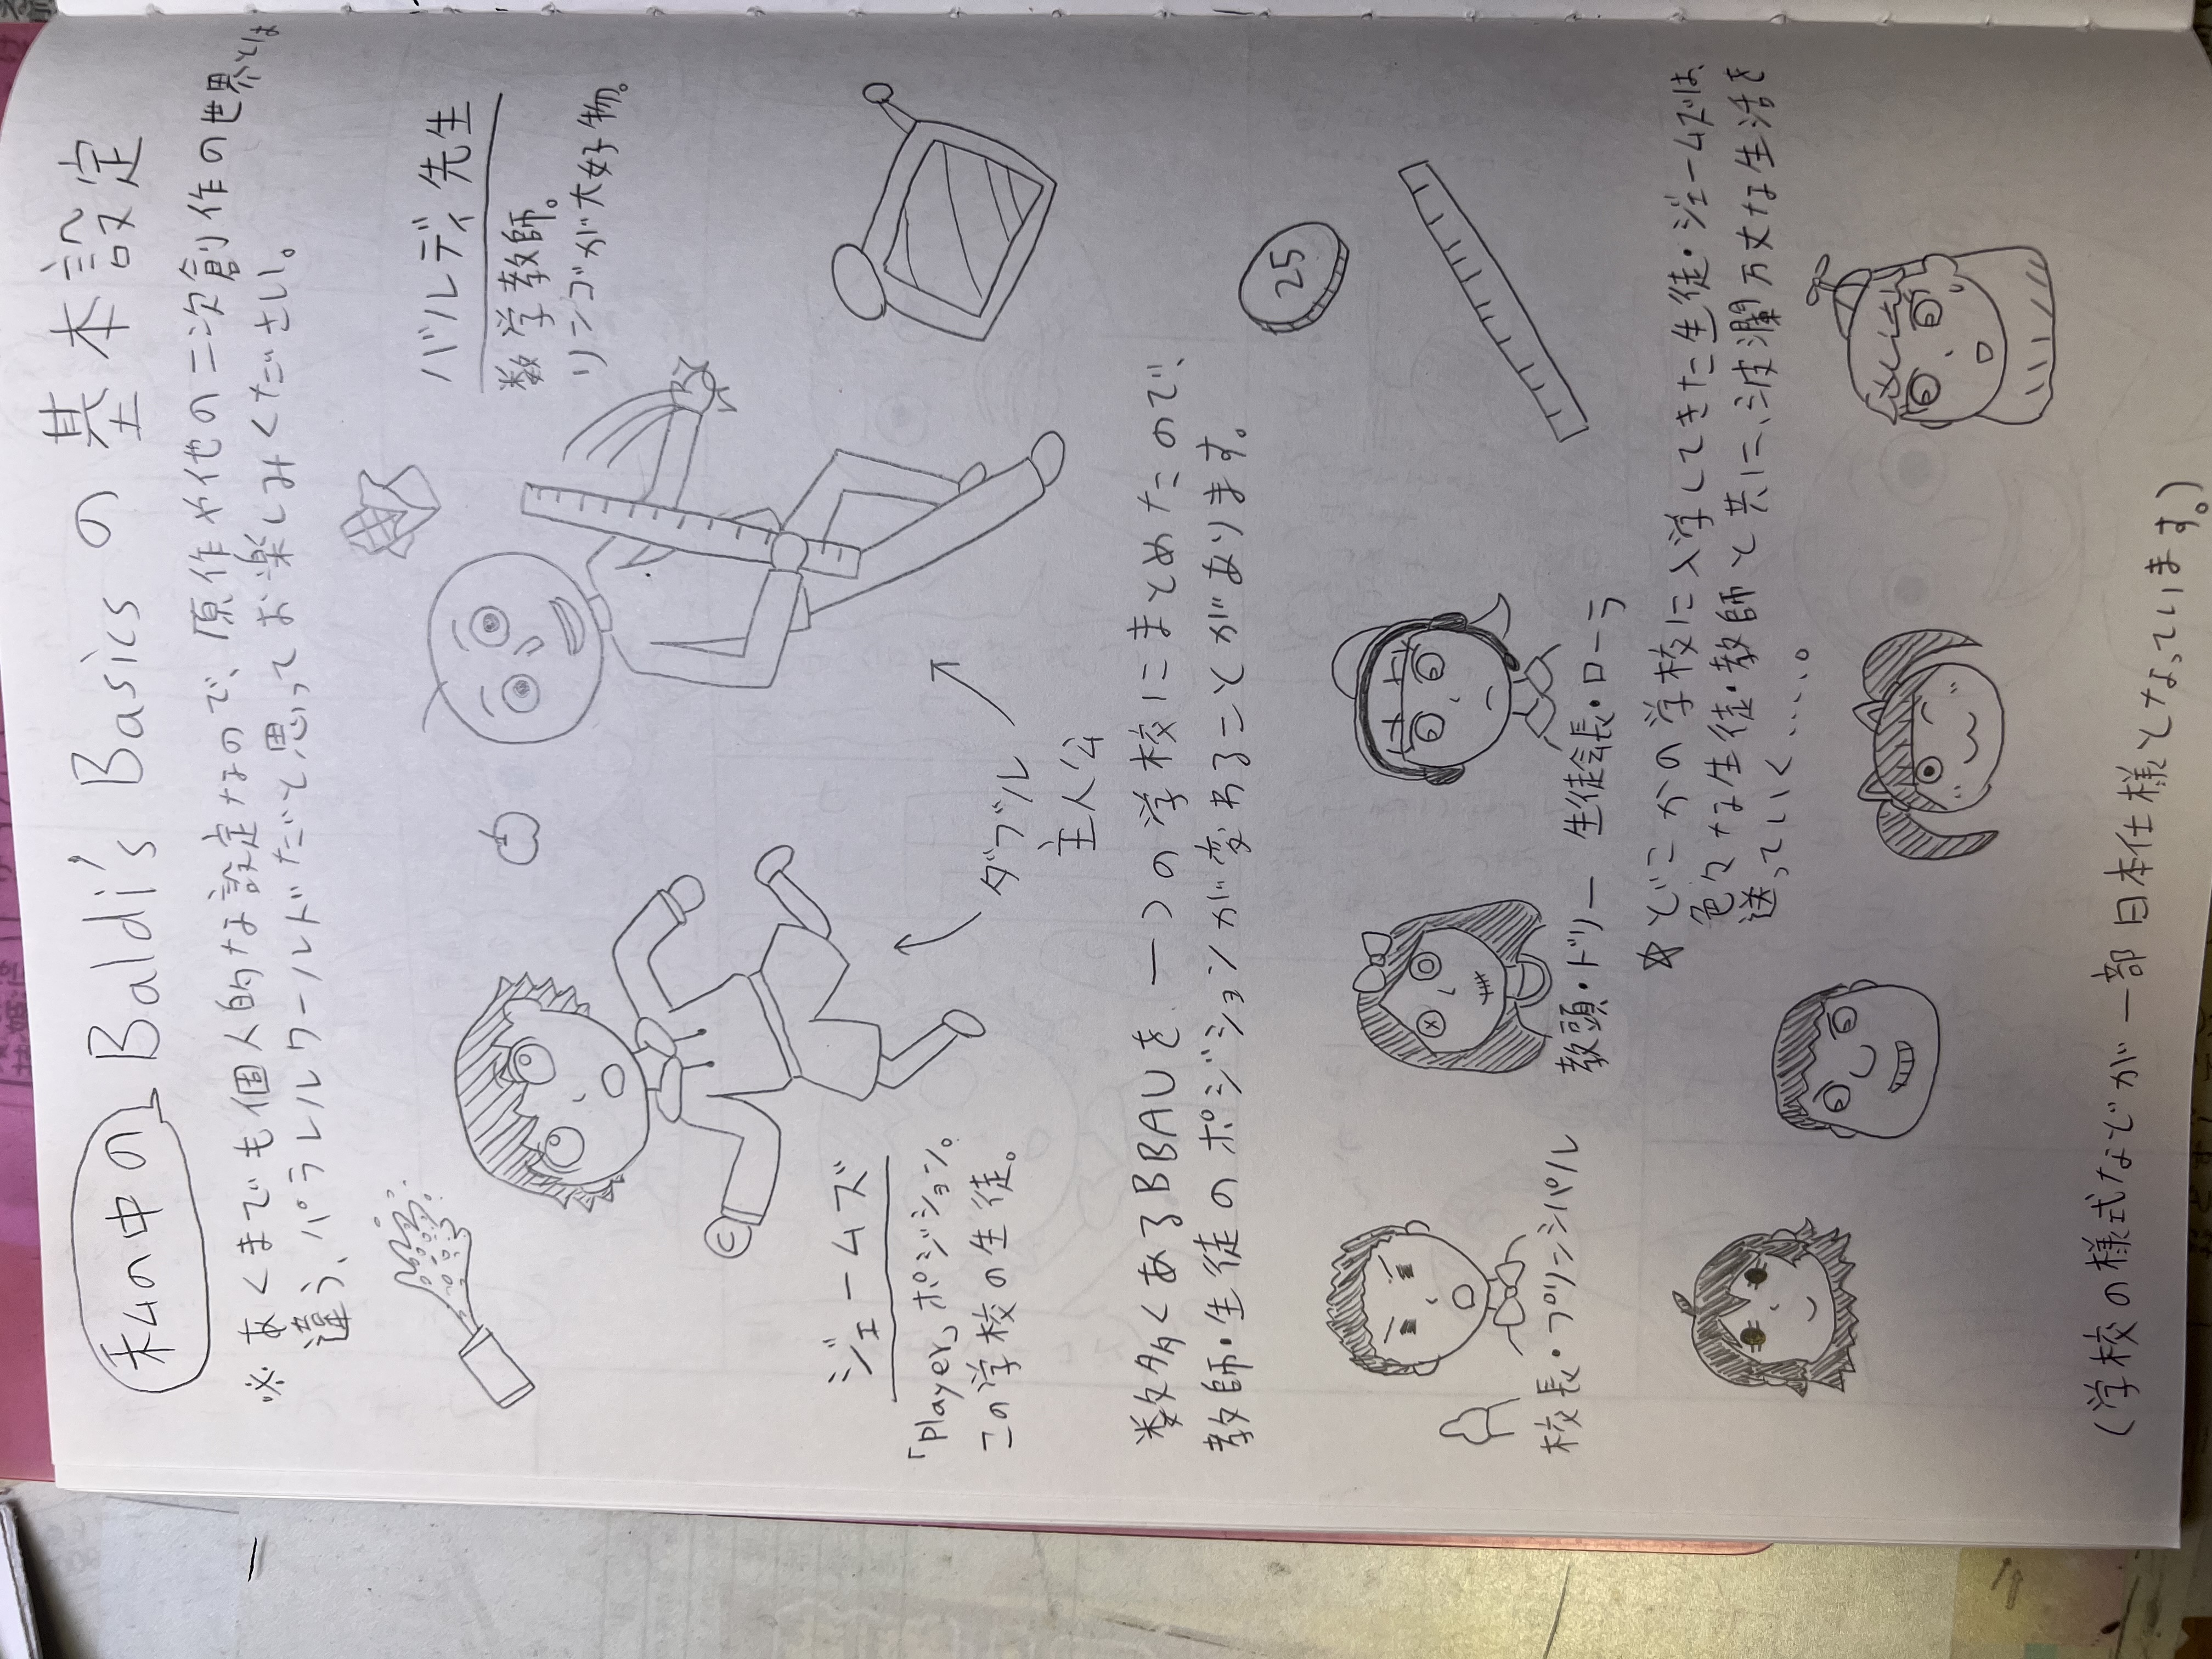 私の中の Baldi's Basics の 基本設定
※ あくまでも個人的な設定なので、原作や他の二次創作の世界とは
違う、パラレルワールドだと思ってお楽しみください。
バルディ先生
数学教師。
リンゴが大好物。
ジェームズ
「player」ポジション。
この学校の生徒。
ダブル
主人公
数多くあるBBAUを、一つの学校にまとめたので、
教師・生徒のポジションが変わることがあります。
25
校長・プリンシパル
教頭・ドリー
生徒会長・ローラ
☆ どこかの学校に入学してきた生徒・ジェームズは、
色々な生徒・教師と共に、波瀾万丈な生活を
送っていく……。
(学校の様式などが一部日本仕様となっています。)